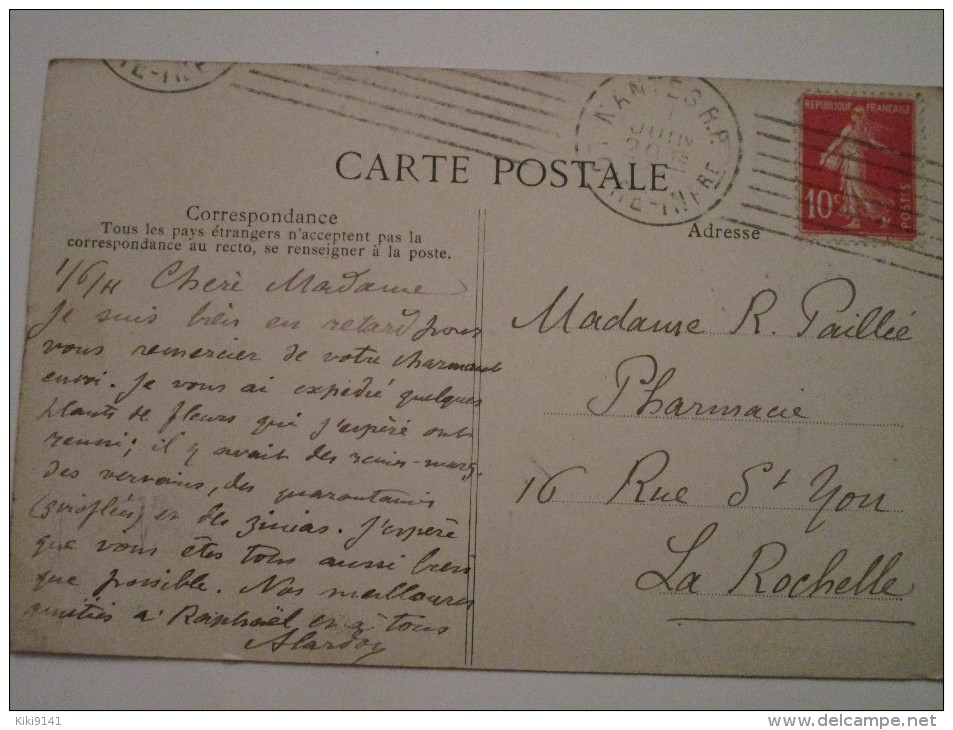 NANTES R.P.
JUIN
RE-INFRE
REPUBLIQUE FRANÇAISE
10 c
POSTES
CARTE POSTALE
Correspondance
Tous les pays étrangers n'acceptent pas la
correspondance au recto, se renseigner à la poste.
1/6/11 Chère Madame
Je suis bien en retard pour
vous remercier de votre charmant
envoi. Je vous ai expédié quelques
plants de fleurs qui j'espère ont
reussi; il y avait des reines-marg.
des vervains, des quarantaines
(giroflées) et des zinias. J'espère
que vous êtes tous aussi bien
que possible. Nos meilleures
amitiés à Raphaël et à tous
Alardoy
Adresse
Madame R. Paillié
Pharmacie
16 Rue St Yon
La Rochelle
Kiki9141
www.delcampe.net